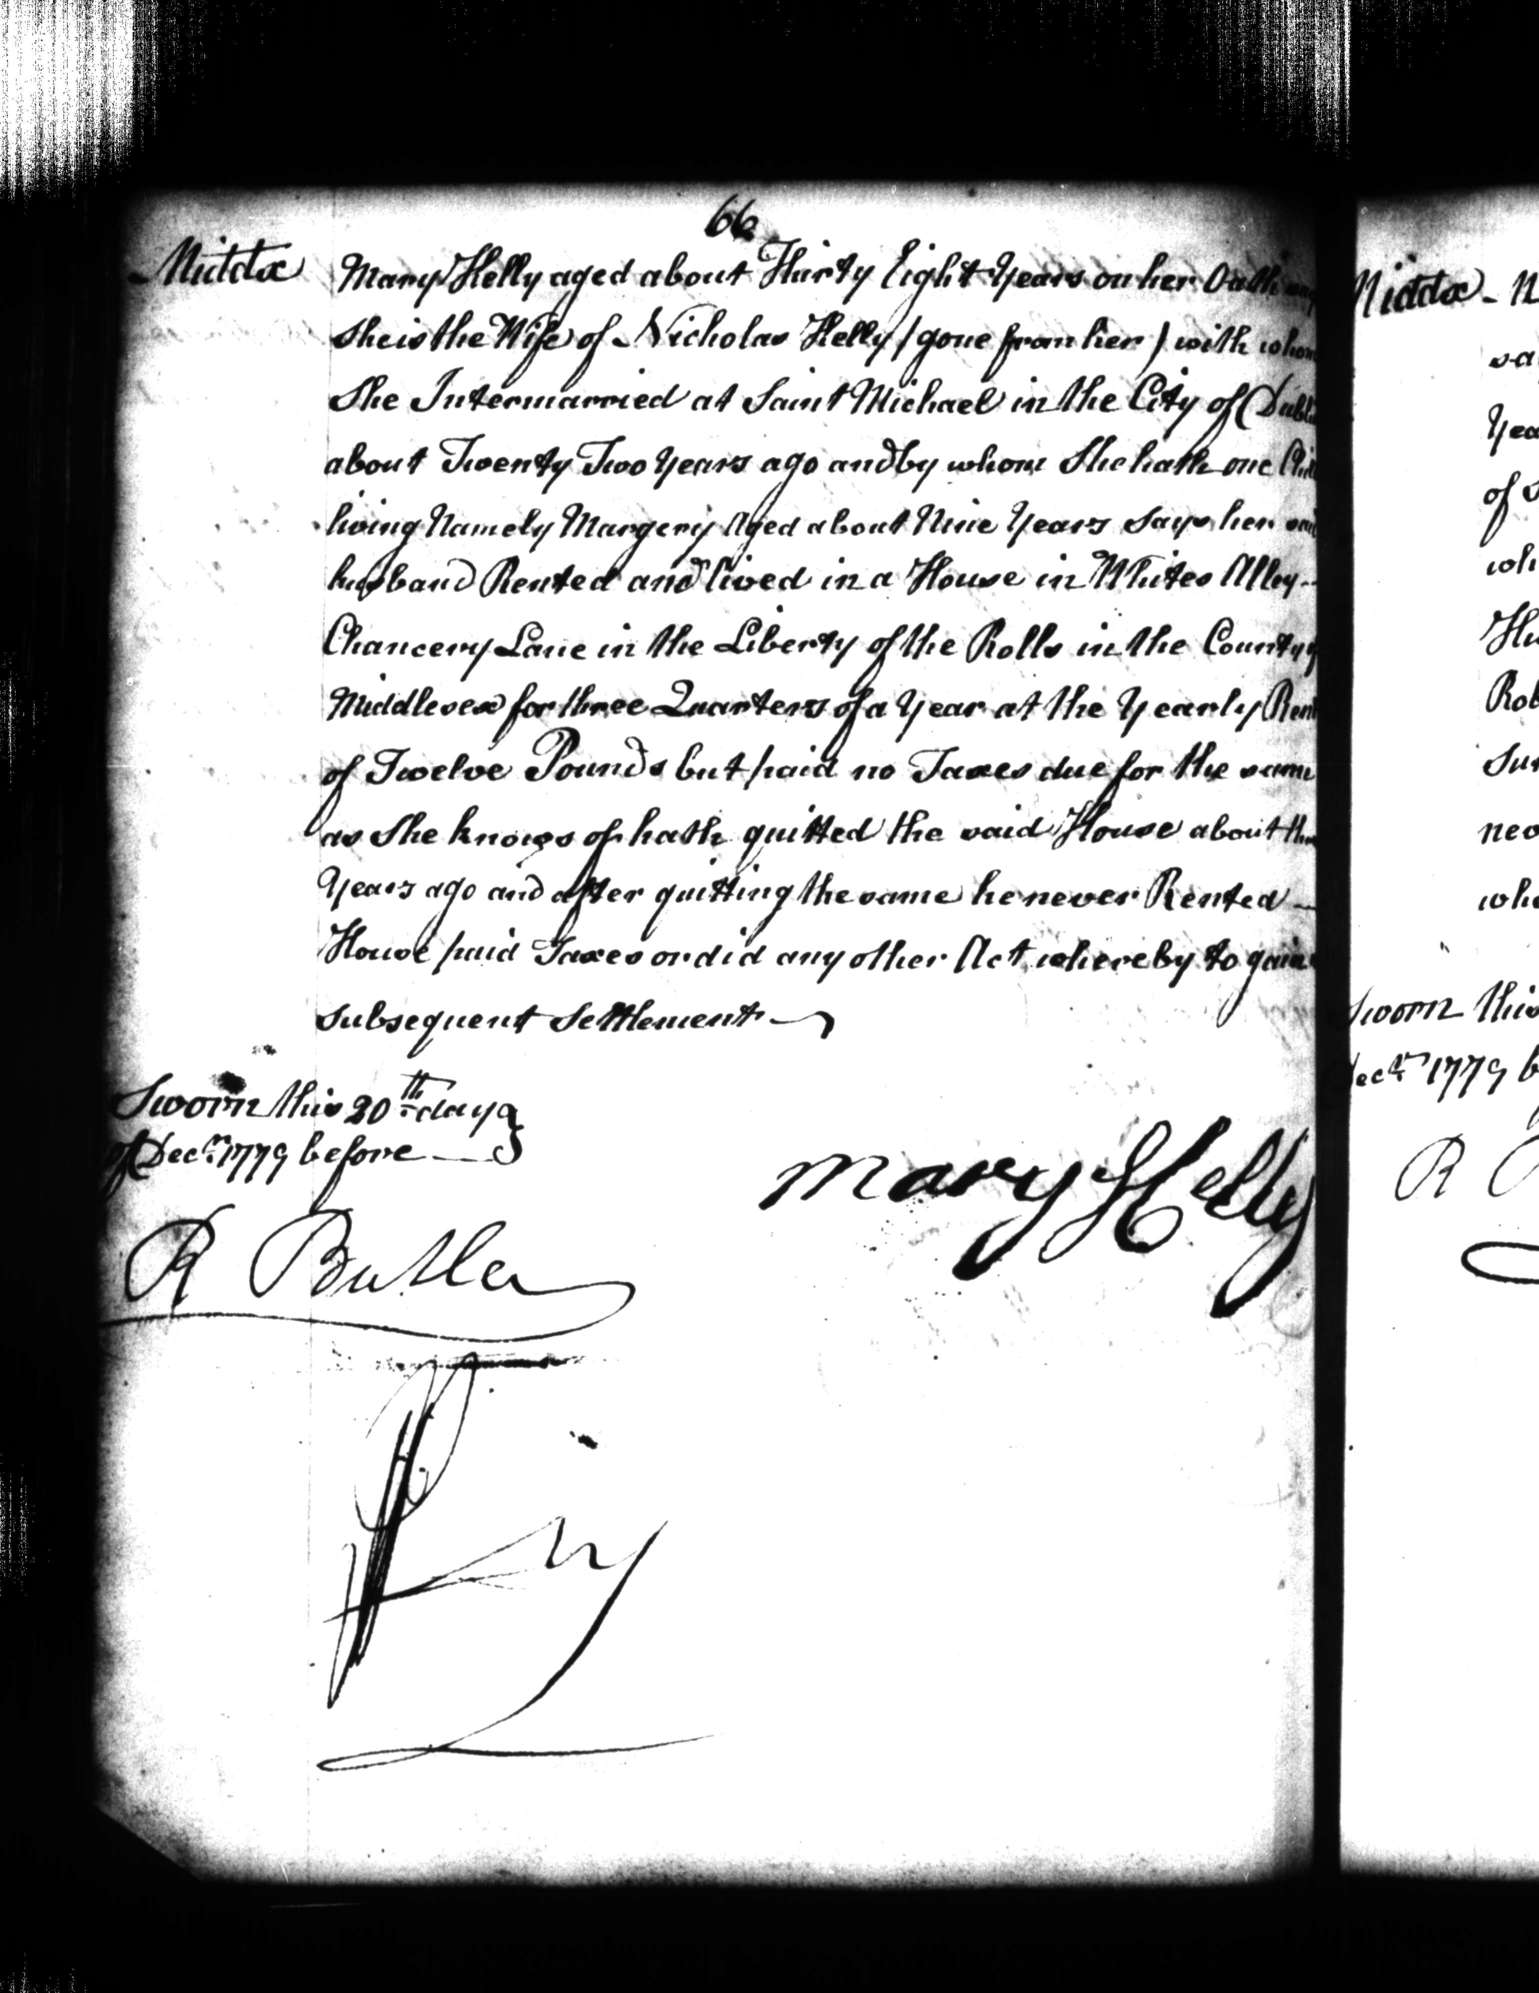 66
Middx Mary Kelly aged about Thirty Eight Years on her Oath
She is the Wife of Nicholas Kelly /gone from her/ with whom
She Intermarried at Saint Michael in the City of Dubli
about Twenty Two Years ago and by whom She hath one Chil
living Namely Margery Aged about Nine Years Says her said
husband Rented and lived in a House in Whites Alley
Chancery Lane in the Liberty of the Rolls in the County of
Middlesex for three Quarters of a Year at the Yearly Rent
of Twelve Pounds but paid no Taxes due for the same
as She knows of hath quitted the said House about
Years ago and after quitting the same he never Rented
House paid Taxes or did any other Act whereby to gain
subsequent Settlement
Sworn this 20th day
of Decr. 1779 before
Mary Kelly
R Butler
Middx - 
sa
Yea
of S
wh
Hu
Rob
Sur
nev
whe
Sworn this
Decr. 1779 b
R